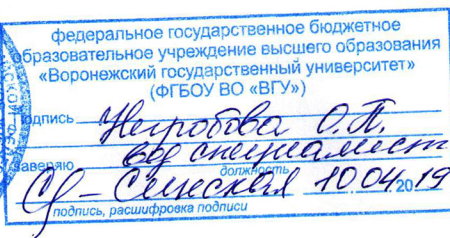 федеральное государственное бюджетное
образовательное учреждение высшего образования
«Воронежский государственный университет»
(ФГБОУ ВО «ВГУ»)
подпись Негробова О.П.
вед специалист
заверяю должность
10 04 2019
подпись, расшифровка подписи